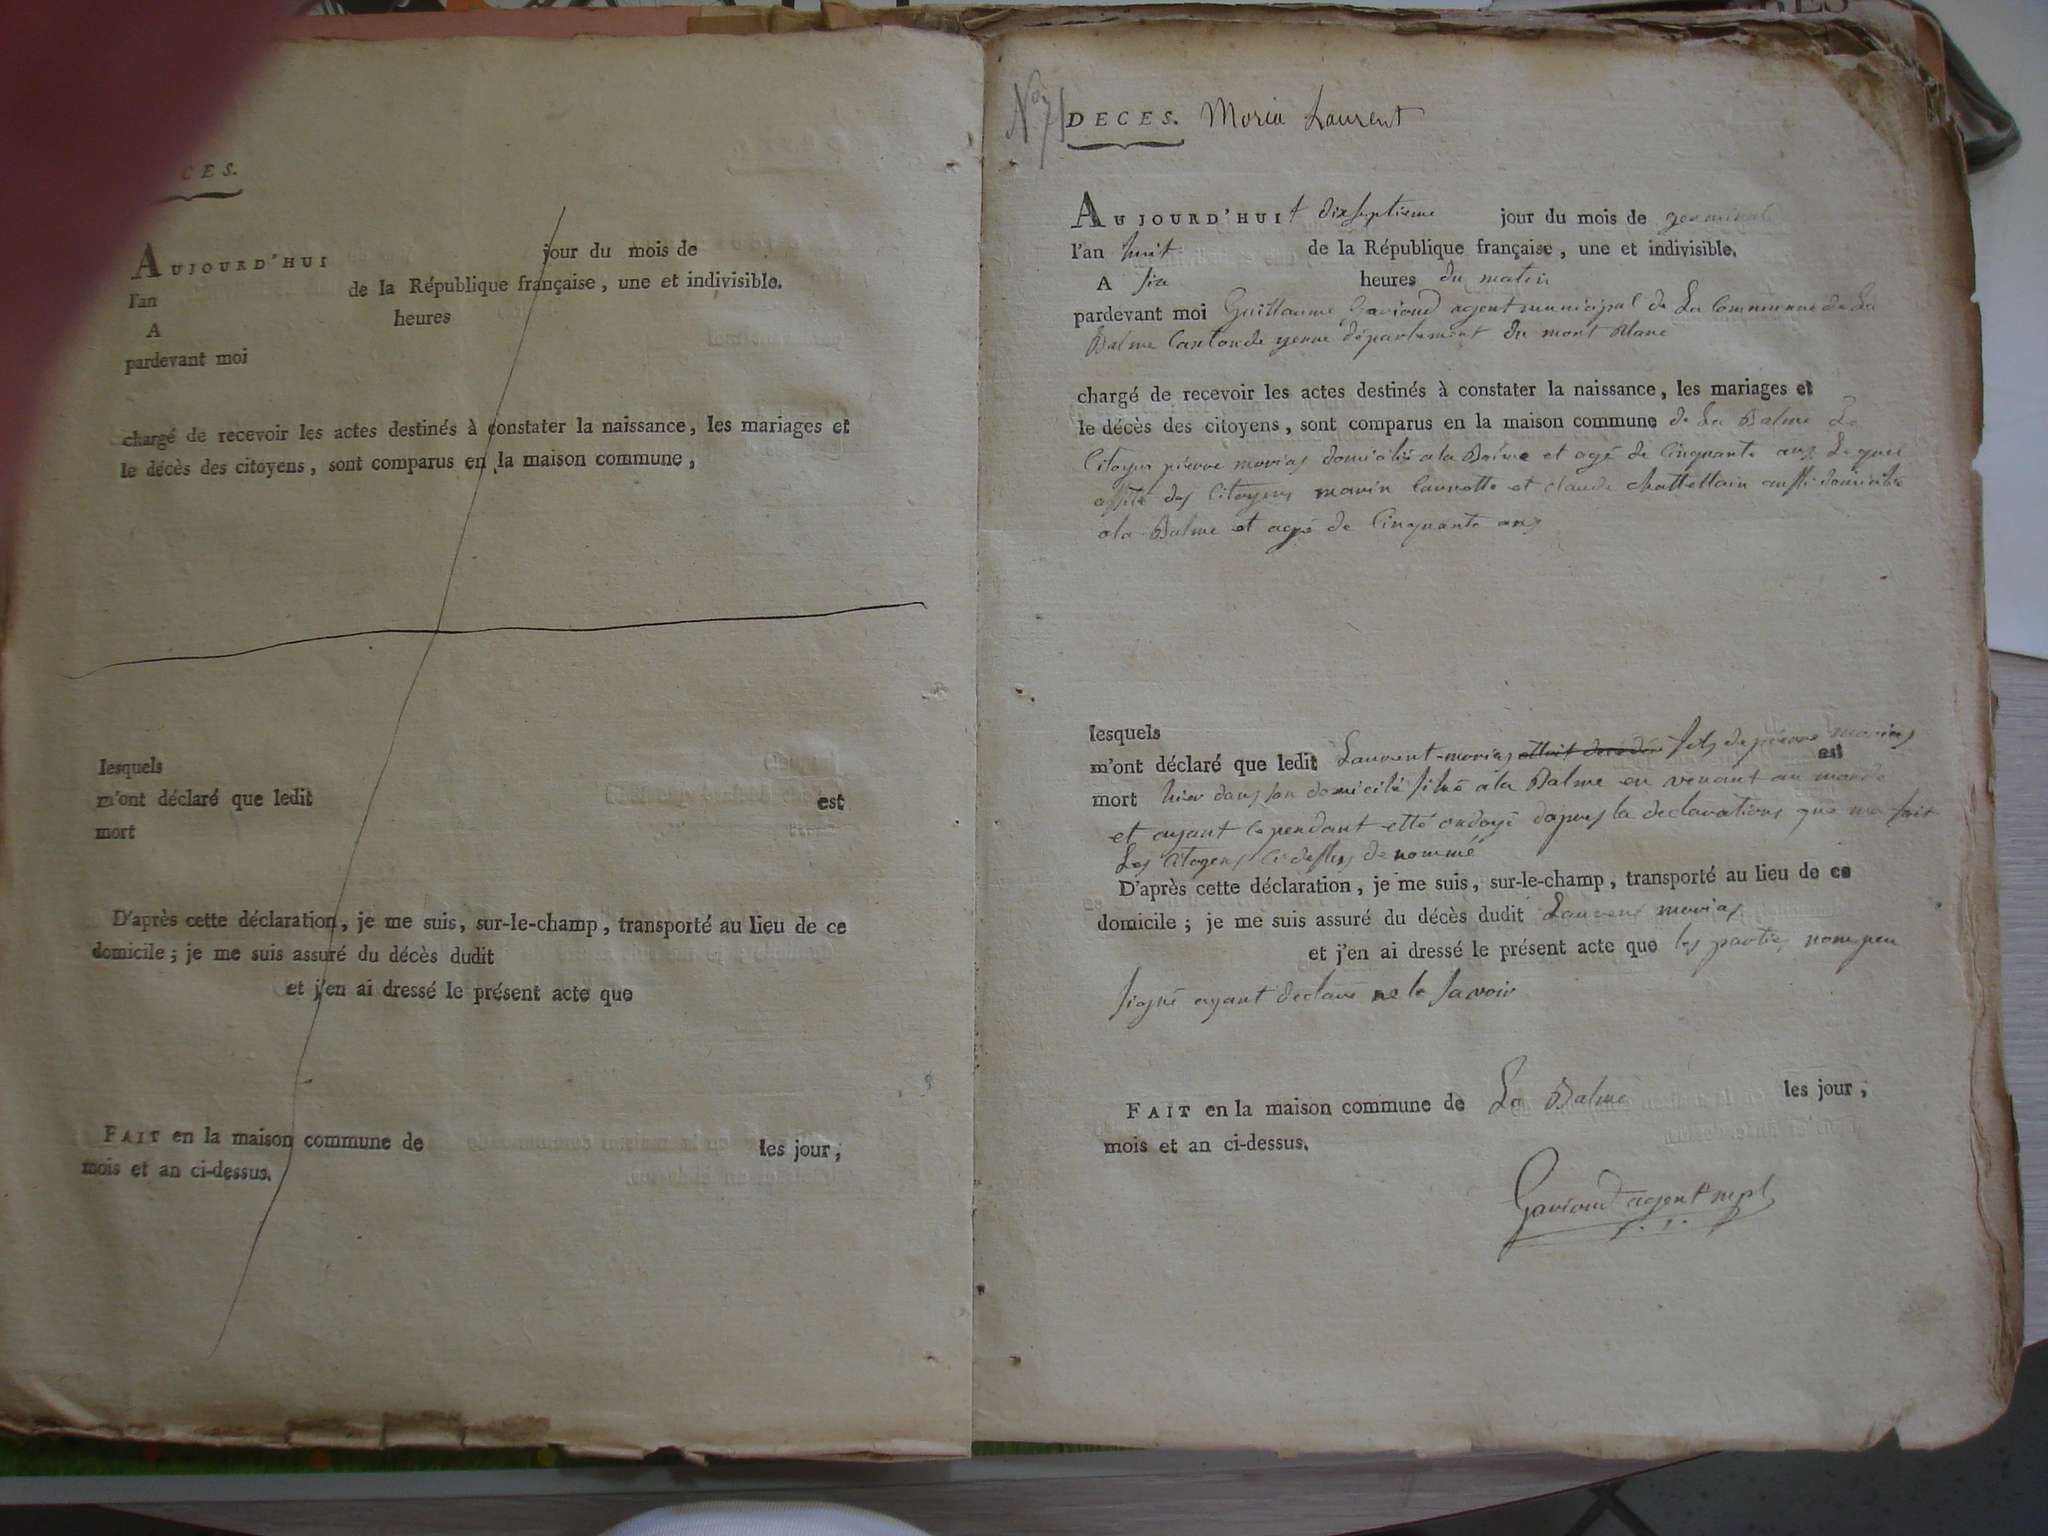 CES.
AUJOURD'HUI jour du mois de
l'an de la République française, une et indivisible.
A heures
pardevant moi
chargé de recevoir les actes destinés à constater la naissance, les mariages et
le décès des citoyens, sont comparus en la maison commune,
lesquels
m'ont déclaré que ledit est
mort
D'après cette déclaration, je me suis, sur-le-champ, transporté au lieu de ce
domicile; je me suis assuré du décès dudit
et j'en ai dressé le présent acte que
FAIT en la maison commune de les jour,
mois et an ci-dessus.
No 71 DECES. Moria Laurent
AUJOURD'HUI dixseptieme jour du mois de germinal
l'an huit de la République française, une et indivisible.
A six heures du matin
pardevant moi Guillaume Gavioud agent municipal de La Commune de La
Balme Canton de yenne département du mont blanc
chargé de recevoir les actes destinés à constater la naissance, les mariages et
le décès des citoyens, sont comparus en la maison commune de La Balme Le
Citoyen pierre morias domicilié a la Balme et agé de Cinquante ans Lequel
assité des Citoyens marin et claude chattellain aussi domicilié
a la Balme et agé de Cinquante ans
lesquels
m'ont déclaré que ledit Laurent morias fils de pierre morias est
mort hier dans son domicilié situé a la Balme en venant au monde
et ayant cependant etté ondoyé dapres la declarations que ma fait
Les Citoyens ci dessus denommé
D'après cette déclaration, je me suis, sur-le-champ, transporté au lieu de ce
domicile; je me suis assuré du décès dudit Laurent morias
et j'en ai dressé le présent acte que les parties nom peu
signé ayant declaré ne le savoir
FAIT en la maison commune de La Balme les jour,
mois et an ci-dessus.
Gavioud agent mpl